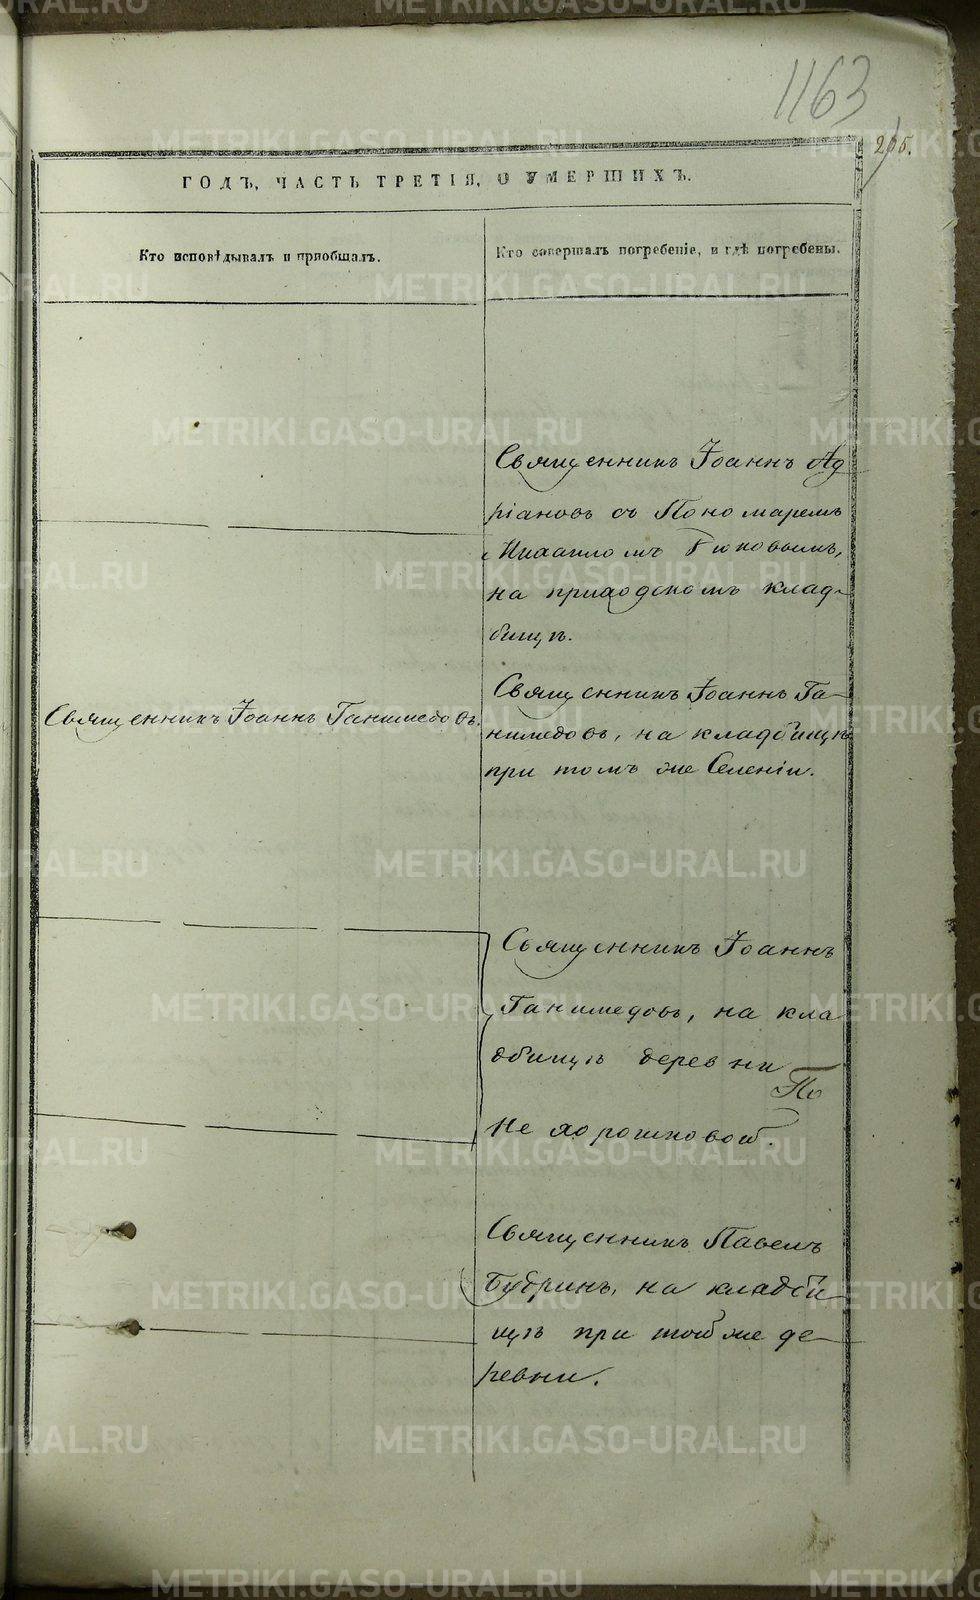 1163
ГОДЪ, ЧАСТЬ ТРЕТІЯ, О УМЕРШИХЪ.
Кто исповѣдывалъ и пріобщалъ.
Кто совершалъ погребеніе, и гдѣ погребены.
Священникъ Іоаннъ Ад
ріановъ съ Пономаремъ
Михаиломъ
на приходскомъ клад-
бищѣ.
Священникъ Іоаннъ Ганимедовъ.
Священникъ Іоаннъ Га-
нимедовъ, на кладбищѣ
при томъ же Селеніи.
Священникъ Іоаннъ
Ганимедовъ, на кла
дбищѣ деревни
По
Не хорошковой.
Священникъ Павелъ
Бубринъ, на кладби
щѣ при той же де-
ревни.
METRIKI.GASO-URAL.RU